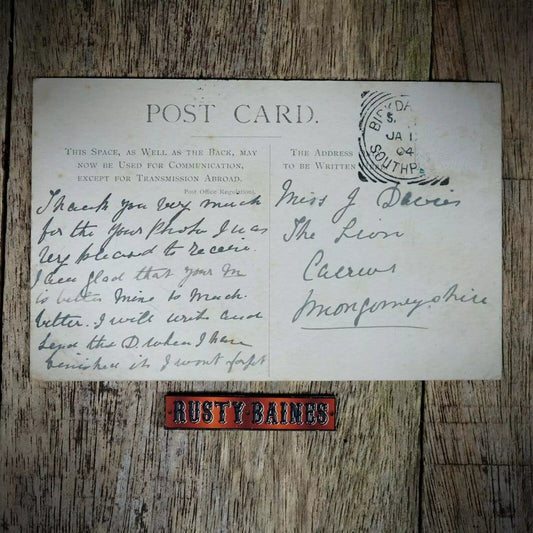 POST CARD.
THIS SPACE, AS WELL AS THE BACK, MAY
NOW BE USED FOR COMMUNICATION,
EXCEPT FOR TRANSMISSION ABROAD.
Post Office Regulation).
THE ADDRESS
TO BE WRITTEN
BIRKDA
S.
JA 1
04
SOUTHP
Thank you very much
for the your Photo I was
very pleased to receive.
I am glad that your M
is better Mine is Much
better. I will write and
send the D when I have
finished it I wont forget
Miss J Davies
The Lion
Caersws
Montgomeryshire
RUSTY·BAINES